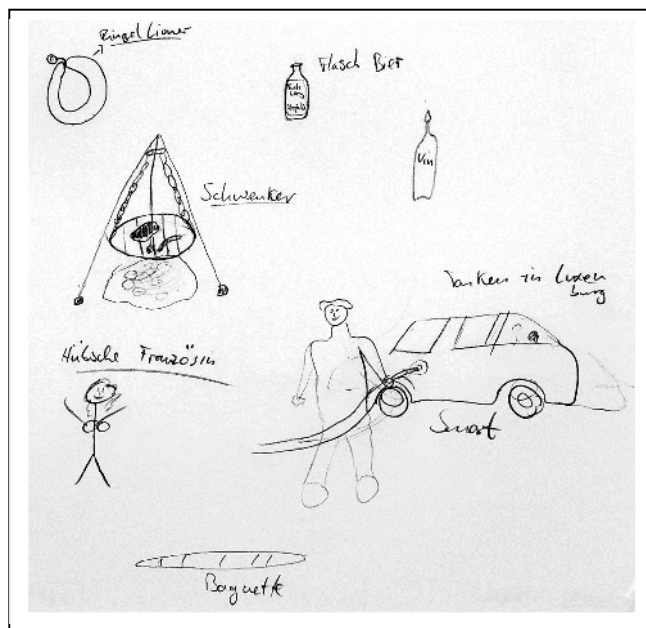 Ringel Lioner
Flasch Bier
Vin
Schwenker
Tanken in Luxem
burg
Hübsche Französin
Smart
Baguette